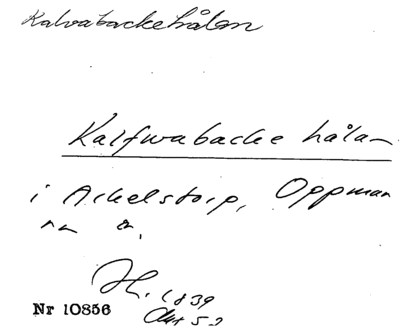 Kalvabackehålan
Kalfwabacke hålan
i Arkelstorp, Oppman
na s.
H. 1839
Akt 52
Nr 10856